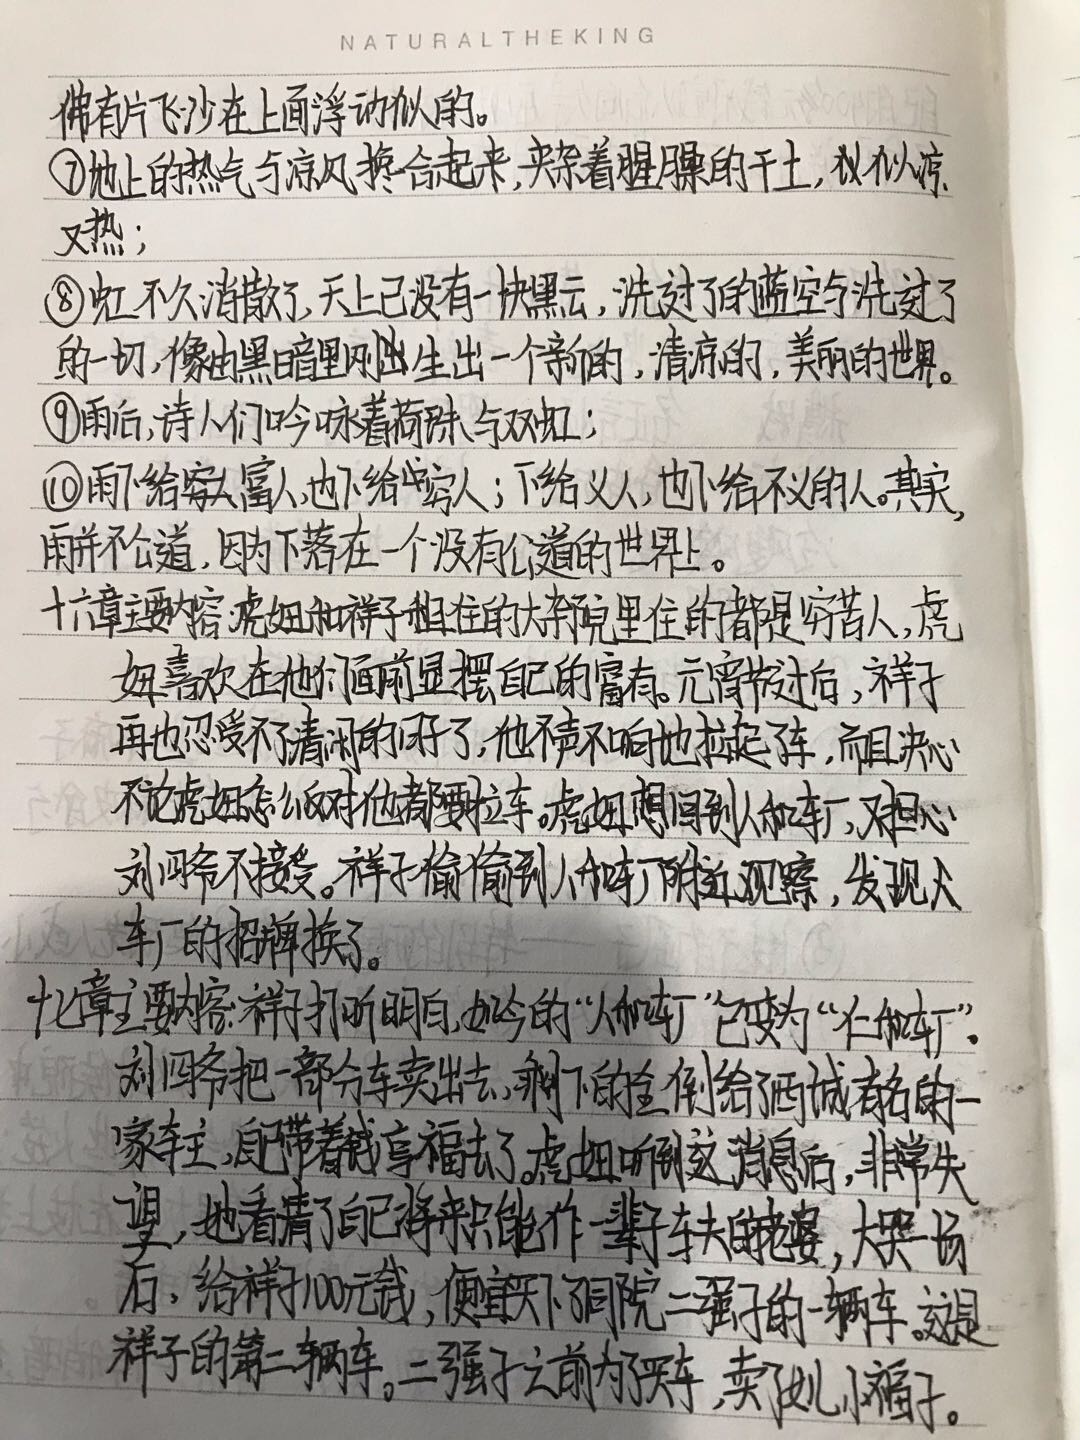 NATURALTHEKING
佛有片飞沙在上面浮动似的。
⑦地上的热气与凉风搀合起来,夹杂着腥臊的干土,似凉
又热;
⑧虹不久消散了,天上已没有一块黑云,洗过了的蓝空与洗过了
的一切,像由黑暗里刚出生出一个新的,清凉的,美丽的世界。
⑨雨后,诗人们吟咏着荷珠与双虹;
⑩雨下给富人,也下给穷人;下给义人,也下给不义的人。其实,
雨并不公道,因为下落在一个没有公道的世界上。
十六章主要内容:虎妞和祥子租住的大杂院里住的都是穷苦人,虎
妞喜欢在他们面前显摆自己的富有。元宵节过后,祥子
再也忍受不了清闲的日子了,他不声不响地拉起了车,而且决心
不论虎妞怎么反对他都要拉车。虎妞想回到人和车厂,又担心
刘四爷不接受。祥子偷偷到人和车厂附近观察,发现人
车厂的招牌换了。
十七章主要内容:祥子打听明白,如今的“人和车厂”已变为“仁和车厂”.
刘四爷把一部分车卖出去,剩下的全倒给了西城有名的一
家车主,自己带着钱享福去了。虎妞听到这消息后,非常失
望,她看清了自己将来只能作一辈子车夫的老婆,大哭一场
后,给祥子100元钱,便宜买下了同院二强子的一辆车。这是
祥子的第二辆车。二强子之前为了买车,卖了女儿小福子。